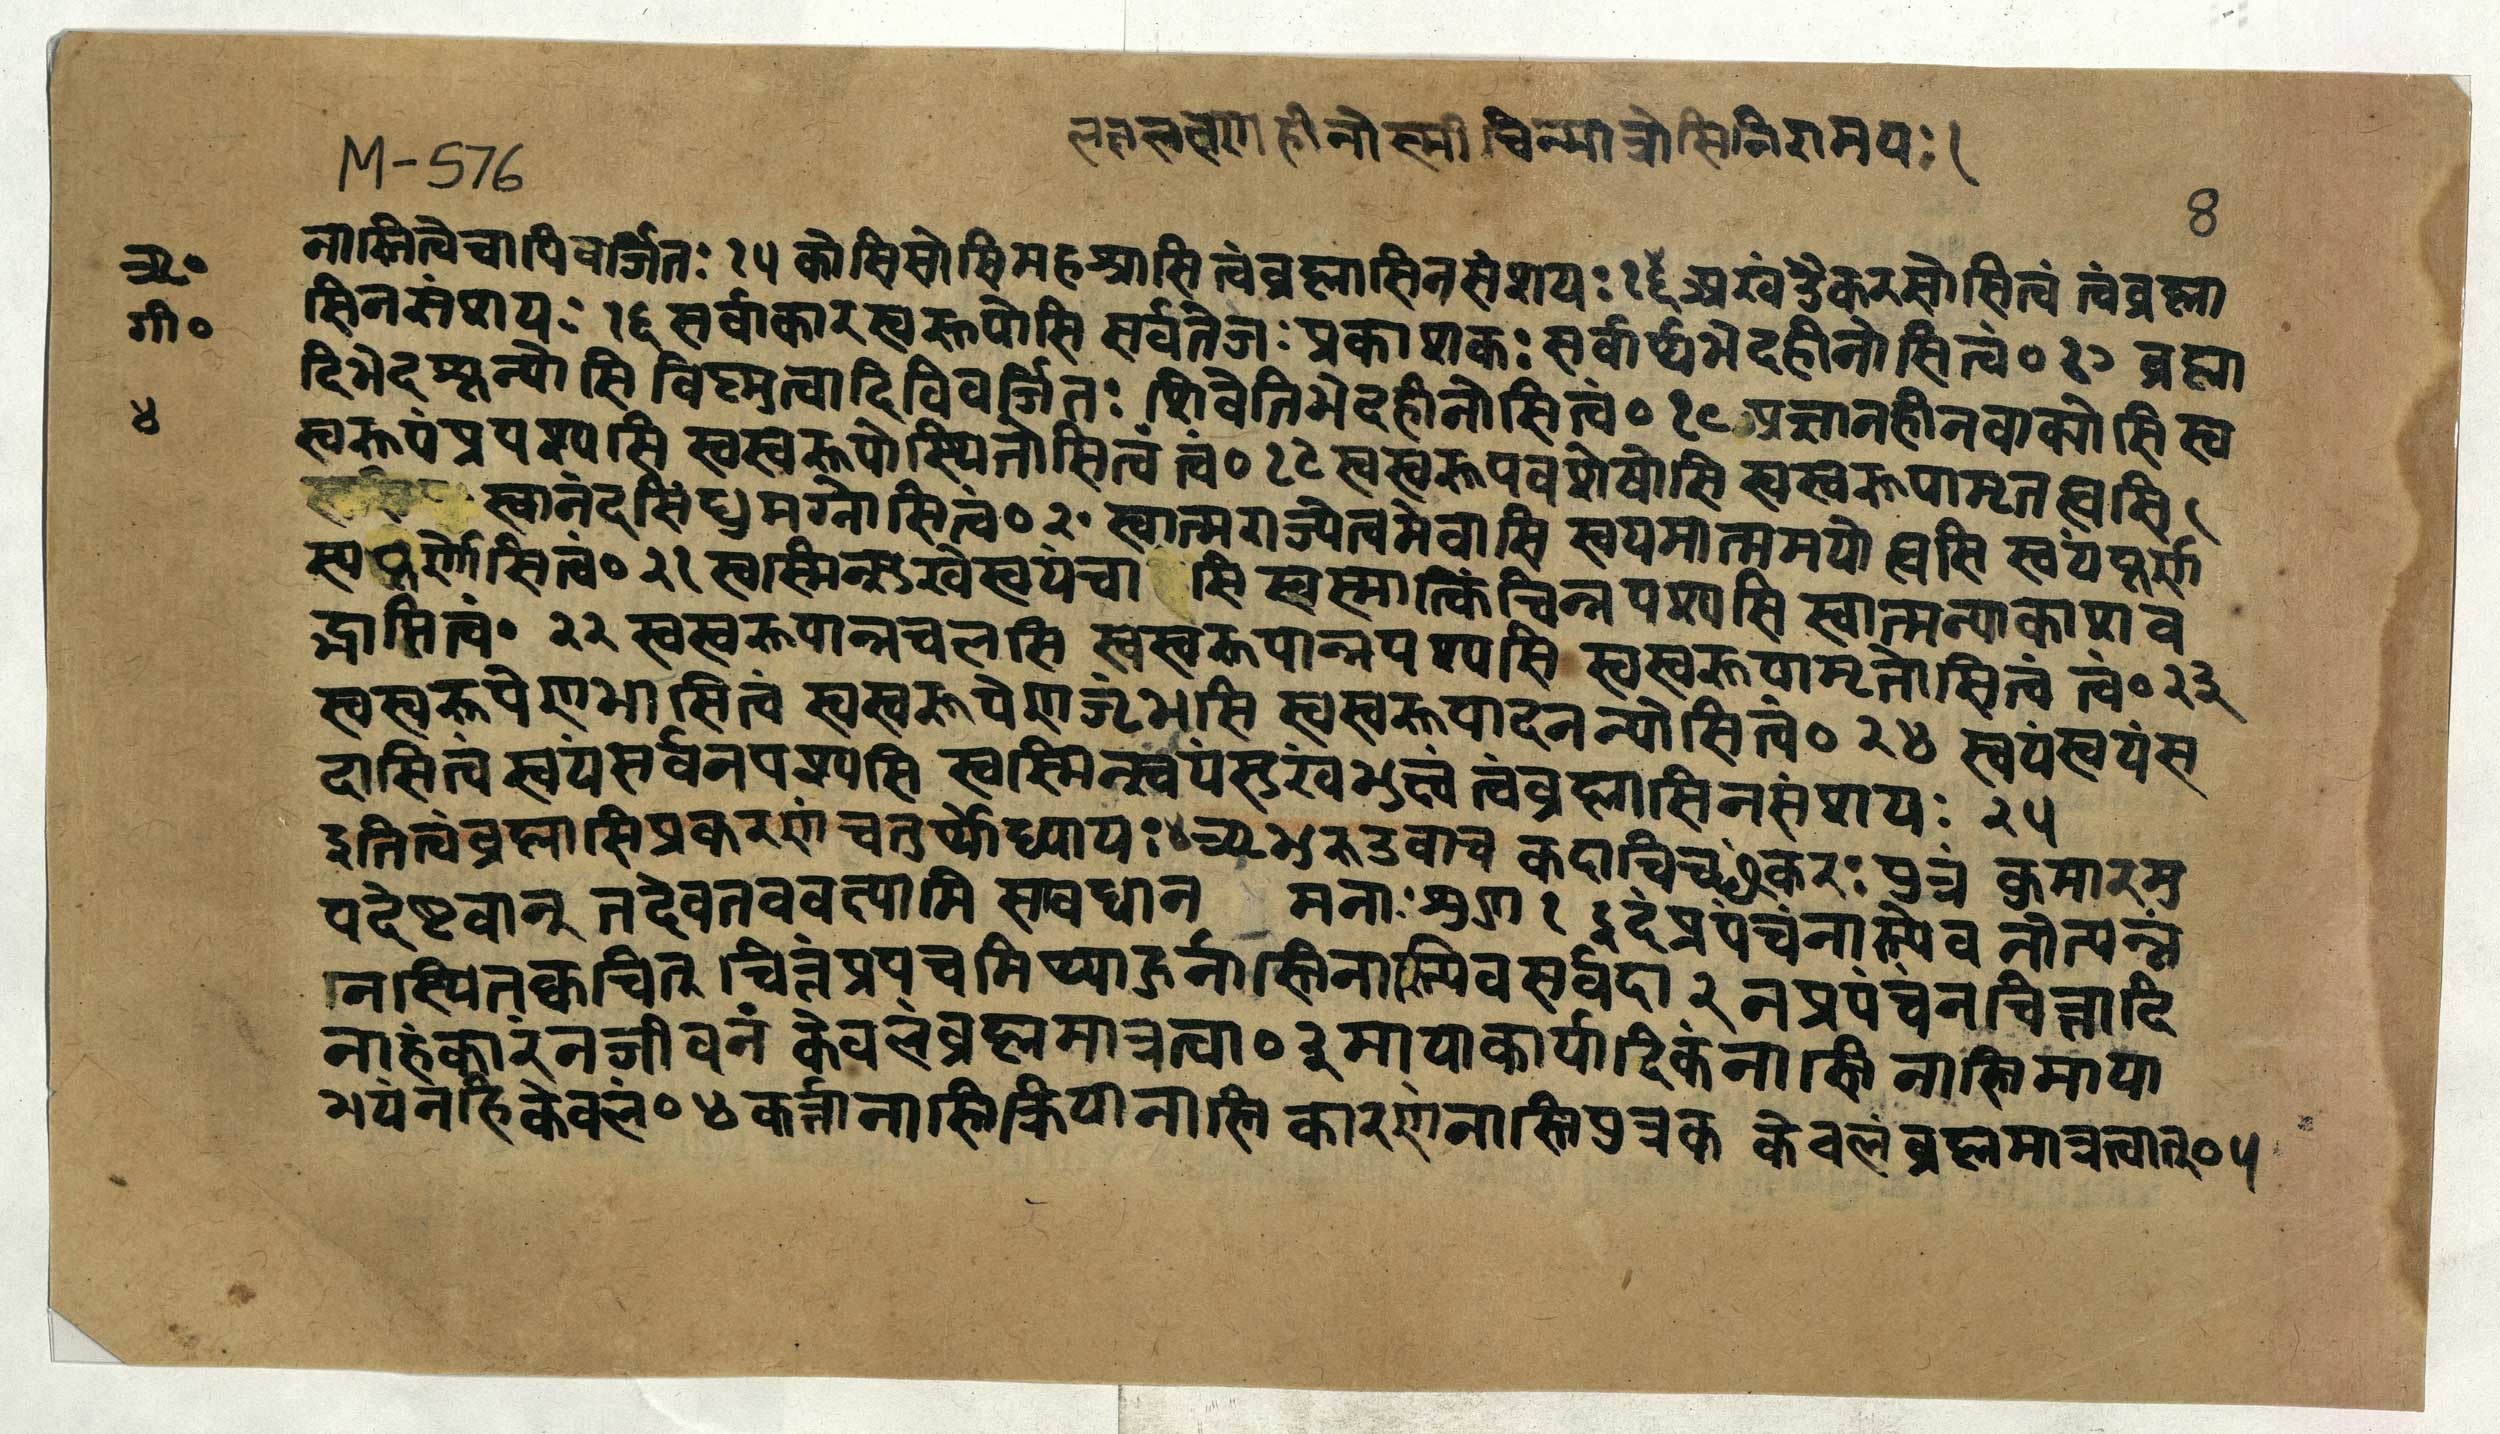 लक्षलक्षणहीनोस्मीचिन्मात्रोसिनिरामयः।
M-576
8
ऋ॰
गी॰
४
नास्तित्वेचापिवर्जितः १५ कोसिसोसिमहआसित्वंब्रह्मासिनसंशयः १६ अखंडैकरसोसित्वं त्वंब्रह्मा
सिनसंशयः १६ सर्वाकारस्वरूपोसि सर्वतेजःप्रकाशकः सर्वार्थभेदहीनोसित्वं॰ १७ ब्रह्मा
दिभेदशून्योसि विष्णुत्वादिविवर्जितः शिवेतिभेदहीनोसित्वं॰ १८ प्रज्ञानहीनवाक्योसि स्व
स्वरूपंप्रपश्यसि स्वस्वरूपोस्थितोसित्वं त्वं॰ १९ स्वस्वरूपवशेषोसि स्वस्वरूपामृतह्यसि।
स्वानंदसिंधुमग्नोसित्वं॰ २॰ स्वात्मराज्येत्वमेवासि स्वयमात्ममयोह्यसि स्वंयपूर्ण
स्यपूर्णोसित्वं॰ २१ स्वस्मिन्सुखेस्वयंचासि स्वस्मात्किंचिन्नपश्यसि स्वात्मन्याकाशव
द्भासित्वं॰ २२ स्वस्वरूपान्नचलसि स्वस्वरूपान्नपश्यसि स्वस्वरूपामृतोसित्वं त्वं॰ २३
स्वस्वरूपेणभासित्वं स्वस्वरूपेणजृंभसि स्वस्वरूपादनन्योसित्वं॰ २४ स्वयंस्वयंस
दासित्वं स्वंयसर्वनपश्यसि स्वस्मिन्स्वयंसुखंभुत्त्वं त्वंब्रह्मासिनसंशयः २५
इतित्वंब्रह्मासिप्रकरणंचतुर्थोध्यायः ४ ऋभुरुउवाच कदाचिच्छंकरः पुत्रं कुमारमु
पदेष्टवान् तदेवतववक्ष्यामि सावधान मनाःशुण १ इदंप्रपंचंनास्त्येव नोत्पन्नं
नस्थितक्वचित् चित्तंप्रपंचमिथ्याहुर्नास्तिनास्त्येवसर्वदा २ नप्रपंचंनचित्तादि
नाहंकारंनजीवनं केवलंब्रह्ममात्रत्वा॰ ३ मायाकार्यादिकंनास्ति नास्तिमाया
भयंनहि केवलं॰ ४ कर्त्तानास्तिक्रियानास्ति कारणंनास्तिपुत्रक केवलंब्रह्ममात्रत्वात्॰ ५